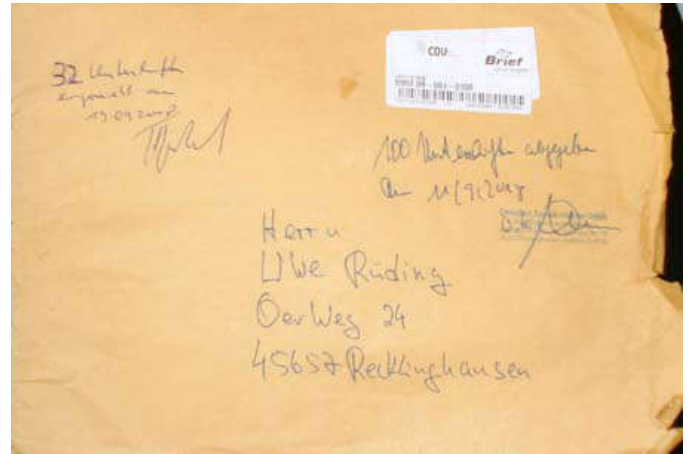 32 Unterschriften
eingereicht am
19.09.2018
CDU
Brief
100 Unterschriften abgegeben
am 11/9/2018
Herrn
Uwe Rüding
Oerweg 24
45657 Recklinghausen